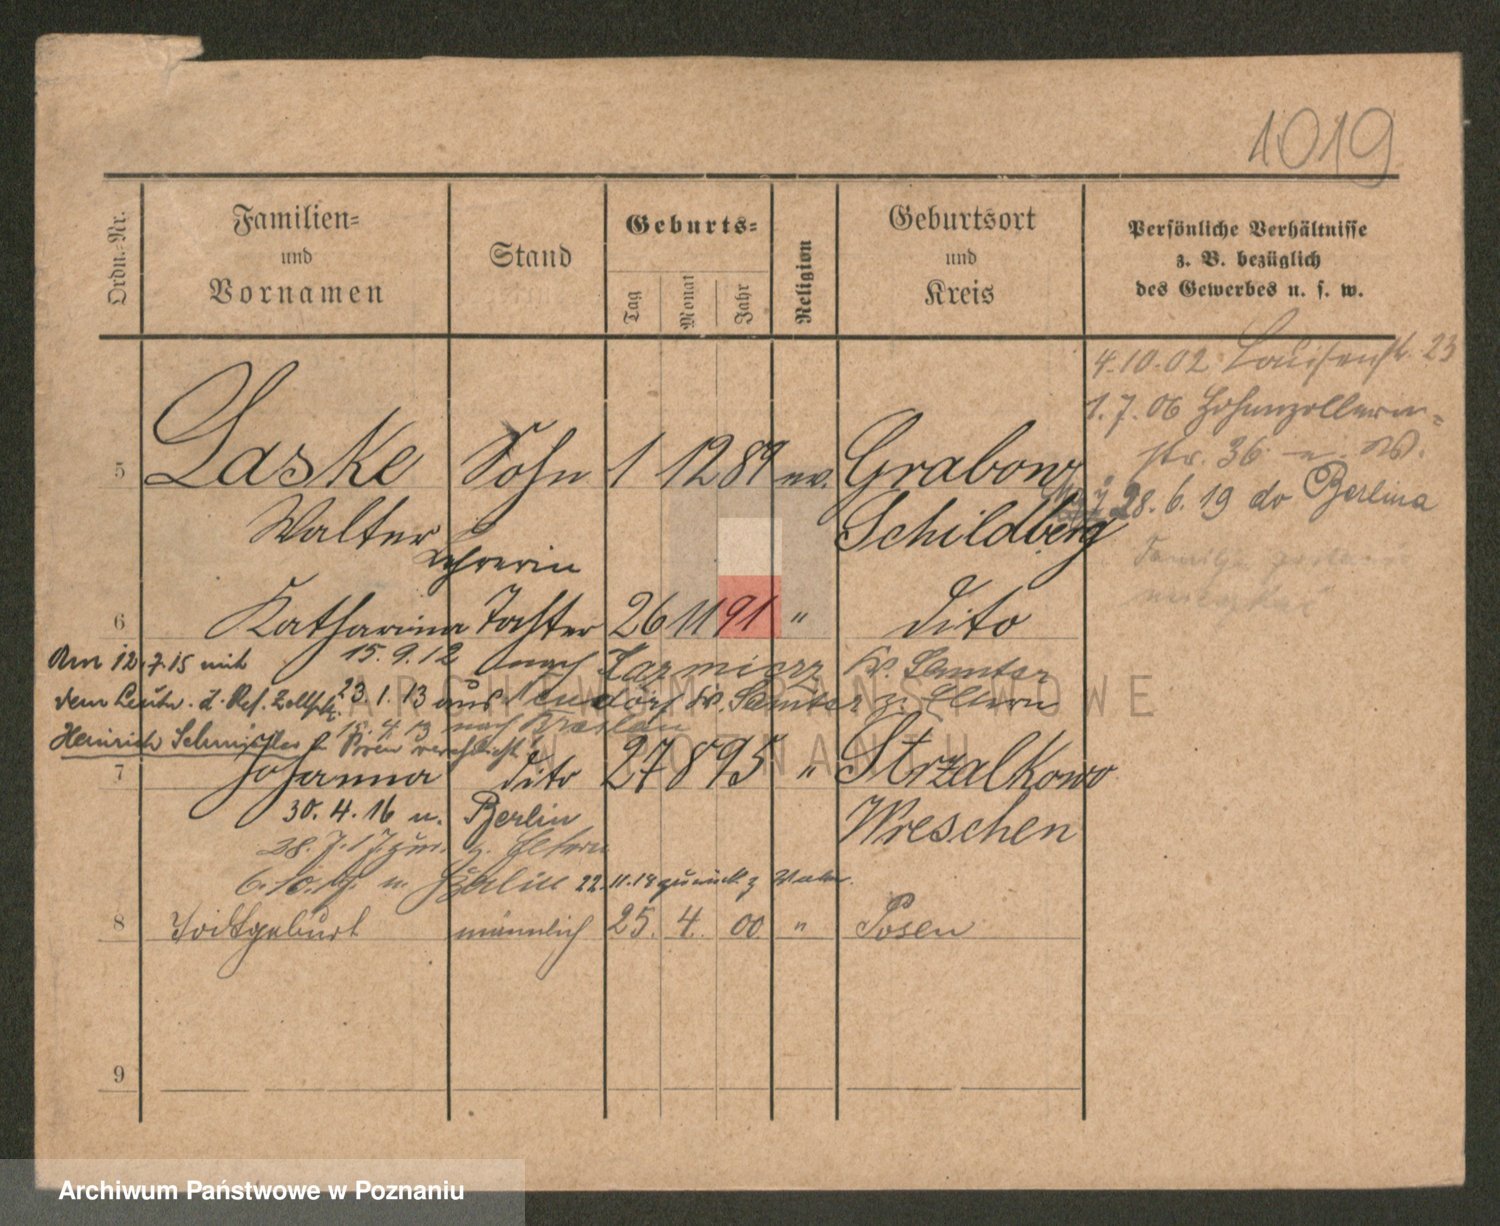 1019
Ordn.-Nr.
Familien-
und
Vornamen
Stand
Geburts-
Tag
Monat
Jahr
Religion
Geburtsort
und
Kreis
Persönliche Verhältnisse
z. B. bezüglich
des Gewerbes u. s. w.
4.10.02 Louisenstr. 23
1.7.06 Hohenzollern-
str. 36
28.6.19 do Berlina
5 Laske Sohn 1 12 89 ev. Grabow
Walter Schildberg
Lehrerin
6 Katharina Tochter 26 11 91 " dito
Am 12.7.15 mit 15.9.12 nach Kr. Samter
dem Leutn. d. Res. 23.1.13 aus Kr. Samter z. Eltern
15.4.13 nach Breslau
Heinrich verehelicht
7 Johanna dito 27 8 95 " Strzalkowo
Wreschen
30.4.16 n. Berlin
28.7.17 zur. z. Eltern
n. Berlin 22.11.18 zurück z. Vater.
8 Todtgeburt männlich 25. 4. 00 " Posen
9
ARCHIWUM PAŃSTWOWE
W POZNANIU
Archiwum Państwowe w Poznaniu